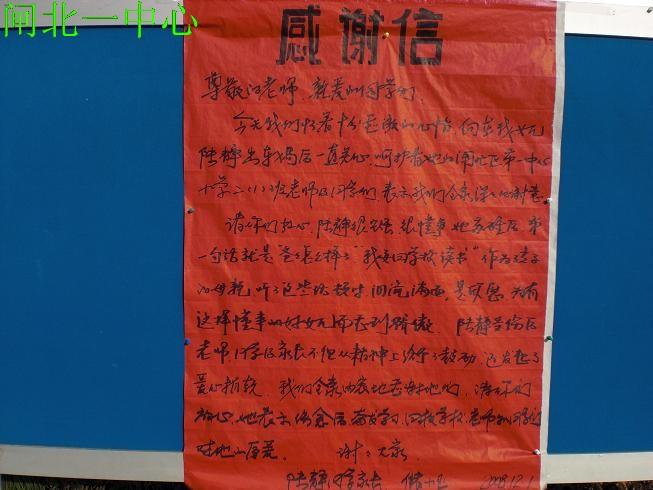 闸北一中心
感谢信
尊敬的老师、亲爱的同学们、
今天我们怀着十分感激的心情,向在我女儿
陆静出车祸后一直关心,呵护着她的闸北区第一中心
小学二(1)班老师及同学们表示我们全家深深的谢意。
请你们放心,陆静很坚强,很懂事,她苏醒后第
一句话就是"爸爸怎么样了""我要回学校读书"作为孩子
的母亲,听了这些话顿时泪流满面,是
这样懂事的好女儿而感到骄傲。陆静受伤后
老师同学及家长不但从精神上给予了鼓励,还发起了
爱心捐款,我们全家由衷地感谢他们,请你们
放心,她表示伤愈后奋发学习,回报学校老师和同学们
对她的厚爱。 谢谢大家
陆静家长
2008.12.1